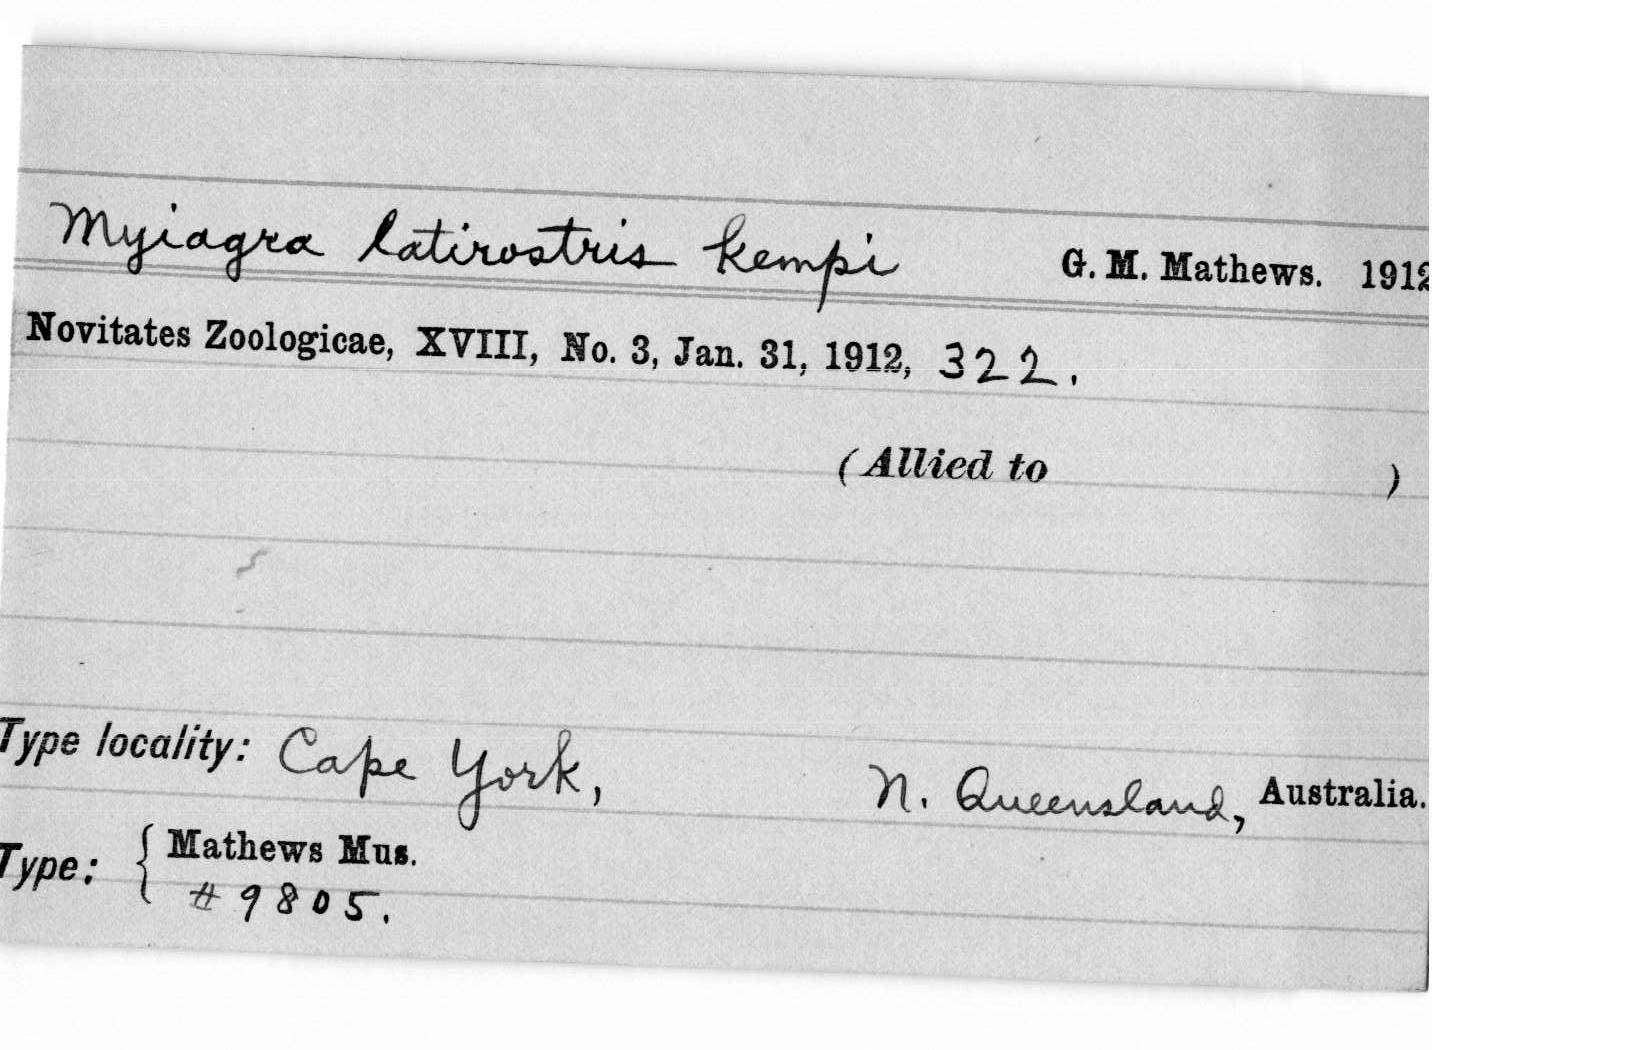 Myiagra latirostris kempi G. M. Mathews. 1912
Novitates Zoologicae, XVIII, No. 3, Jan. 31, 1912, 322.
(Allied to )
Type locality: Cape York, N. Queensland, Australia.
Type: { Mathews Mus.
# 9805.